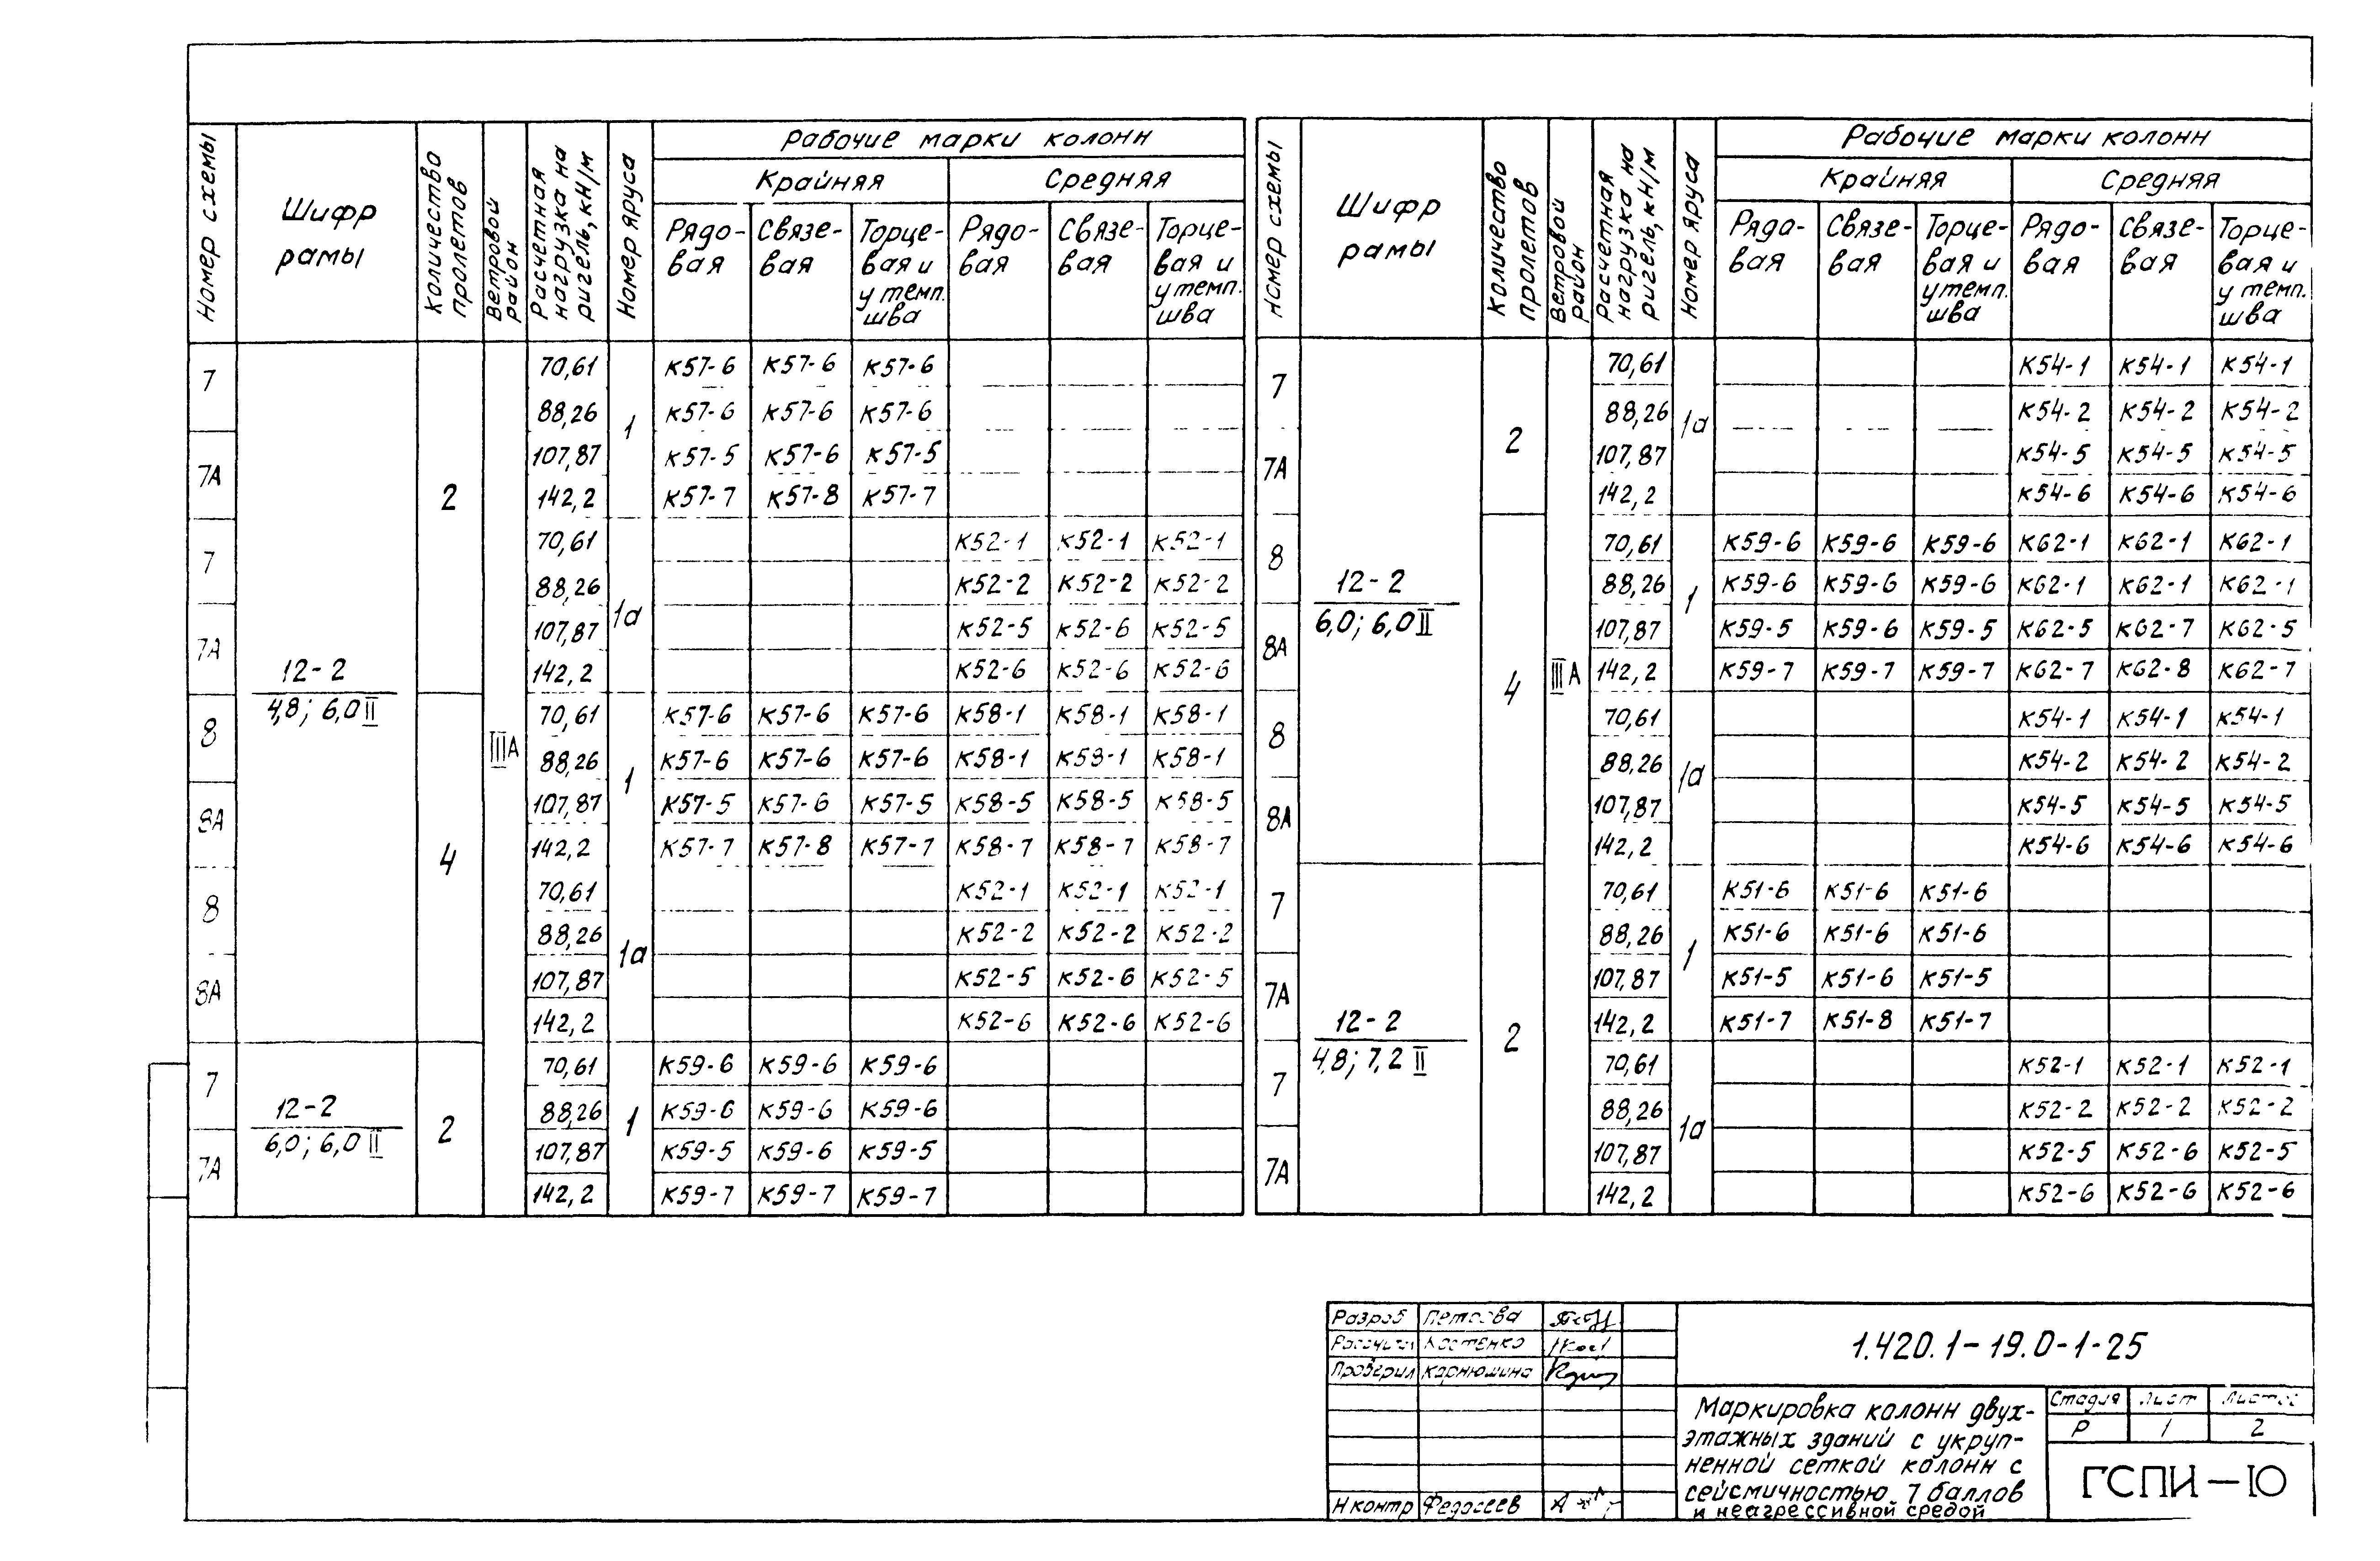 Номер схемы
Шифр рамы
Количество пролетов
Ветровой район
Расчетная нагрузка на ригель, кН/м
Номер яруса
Рабочие марки колонн
Крайняя Средняя
Рядо-вая Связе-вая Торце-вая и у темп. шва Рядо-вая Связе-вая Торце-вая и у темп. шва
7 70,61 К57-6 К57-6 К57-6
88,26 К57-6 К57-6 К57-6
1
7А 107,87 К57-5 К57-6 К57-5
2
142,2 К57-7 К57-8 К57-7
7 70,61 К52-1 К52-1 К52-1
88,26 К52-2 К52-2 К52-2
1а
7А 107,87 К52-5 К52-6 К52-5
12-2
142,2 К52-6 К52-6 К52-6
4,8; 6,0 II
8 70,61 К57-6 К57-6 К57-6 К58-1 К58-1 К58-1
IIIА
88,26 К57-6 К57-6 К57-6 К58-1 К58-1 К58-1
1
8А 107,87 К57-5 К57-6 К57-5 К58-5 К58-5 К58-5
4
142,2 К57-7 К57-8 К57-7 К58-7 К58-7 К58-7
8 70,61 К52-1 К52-1 К52-1
88,26 К52-2 К52-2 К52-2
1а
8А 107,87 К52-5 К52-6 К52-5
142,2 К52-6 К52-6 К52-6
7 70,61 К59-6 К59-6 К59-6
12-2
88,26 К59-6 К59-6 К59-6
2 1
6,0; 6,0 II
7А 107,87 К59-5 К59-6 К59-5
142,2 К59-7 К59-7 К59-7
Номер схемы
Шифр рамы
Количество пролетов
Ветровой район
Расчетная нагрузка на ригель, кН/м
Номер яруса
Рабочие марки колонн
Крайняя Средняя
Рядо-вая Связе-вая Торце-вая и у темп. шва Рядо-вая Связе-вая Торце-вая и у темп. шва
7 70,61 К54-1 К54-1 К54-1
88,26 К54-2 К54-2 К54-2
2 1а
7А 107,87 К54-5 К54-5 К54-5
142,2 К54-6 К54-6 К54-6
8 70,61 К59-6 К59-6 К59-6 К62-1 К62-1 К62-1
12-2
88,26 К59-6 К59-6 К59-6 К62-1 К62-1 К62-1
1
6,0; 6,0 II
8А 107,87 К59-5 К59-6 К59-5 К62-5 К62-7 К62-5
4 IIIА
142,2 К59-7 К59-7 К59-7 К62-7 К62-8 К62-7
8 70,61 К54-1 К54-1 К54-1
88,26 К54-2 К54-2 К54-2
1а
8А 107,87 К54-5 К54-5 К54-5
142,2 К54-6 К54-6 К54-6
7 70,61 К51-6 К51-6 К51-6
88,26 К51-6 К51-6 К51-6
1
7А 107,87 К51-5 К51-6 К51-5
12-2
142,2 К51-7 К51-8 К51-7
2
4,8; 7,2 II
7 70,61 К52-1 К52-1 К52-1
88,26 К52-2 К52-2 К52-2
1а
7А 107,87 К52-5 К52-6 К52-5
142,2 К52-6 К52-6 К52-6
Разраб Петрова
Костенко
Проверил Карнюшина
Н контр Федосеев
1.420.1-19.0-1-25
Маркировка колонн двух-
этажных зданий с укруп-
ненной сеткой колонн с
сейсмичностью 7 баллов
и неагрессивной средой
Стадия Лист Листов
Р 1 2
ГСПИ-10